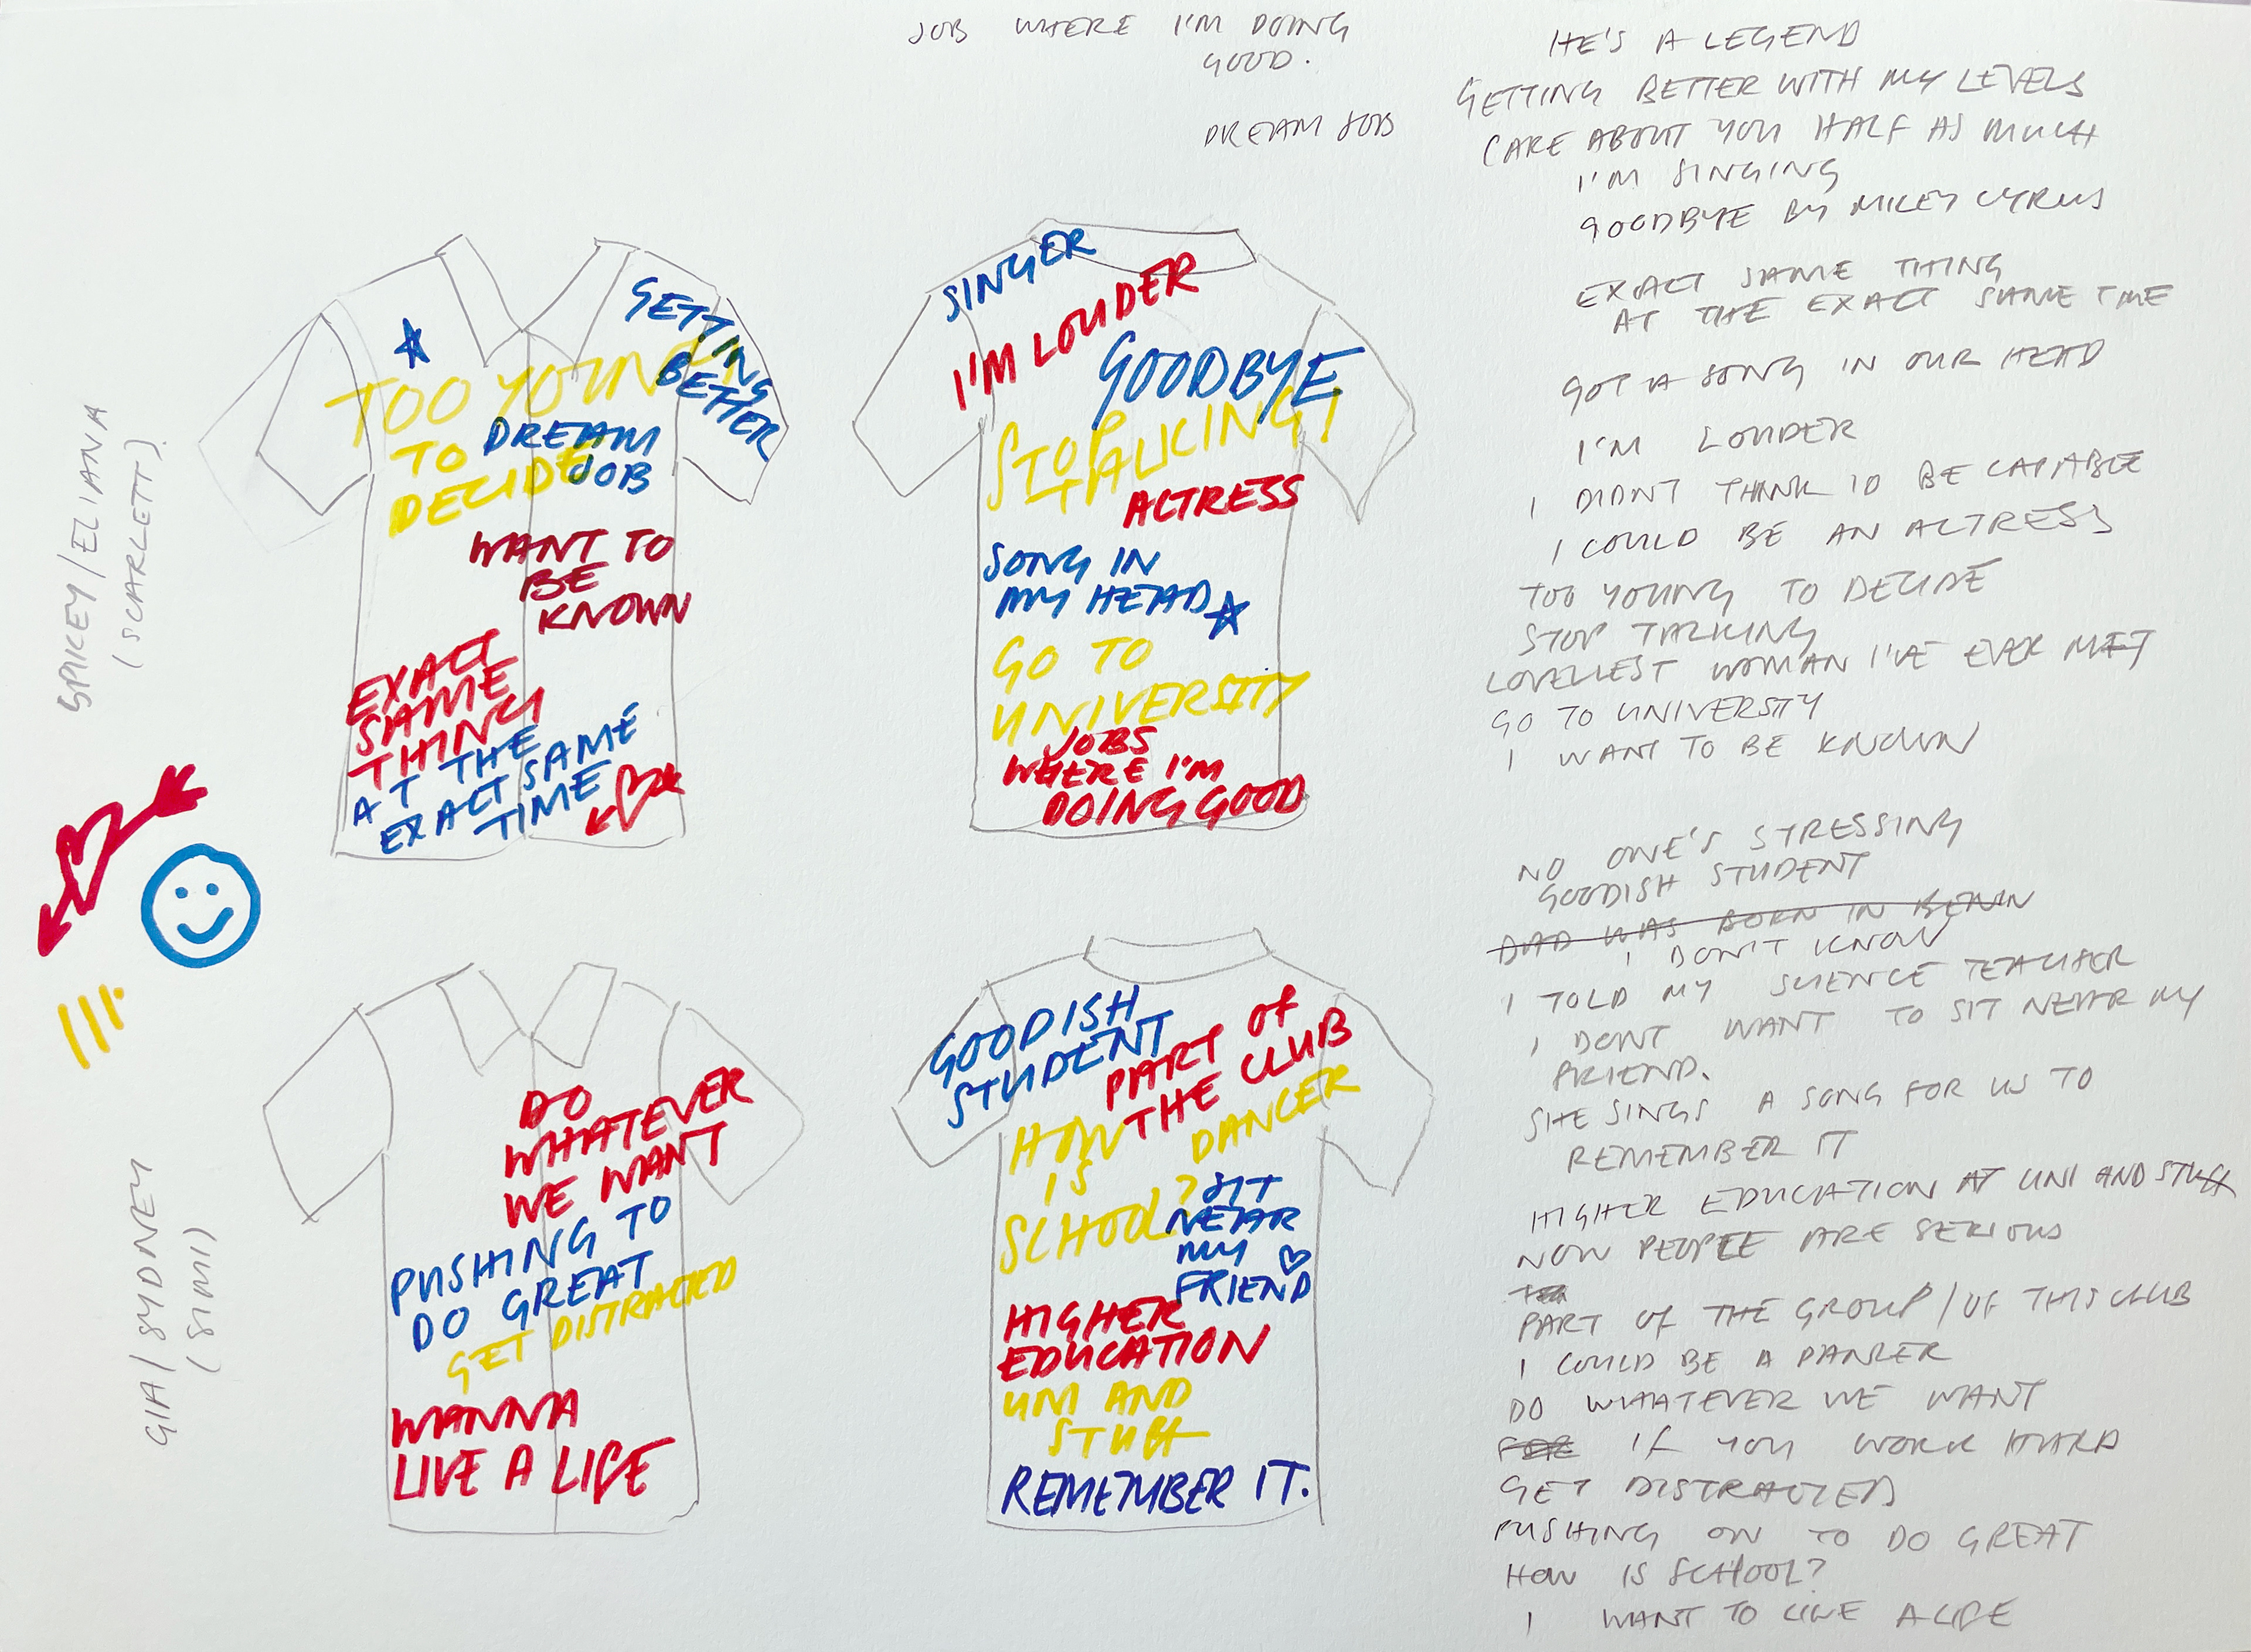 JOB WHERE I'M DOING
GOOD.
DREAM JOB
SPIKEY/ELIANA
(SCARLETT)
GETTING
BETTER
TOO YOUNG
TO
DECIDE
DREAM
JOB
WANT TO
BE
KNOWN
EXACT
SAME
THING
AT THE
EXACT SAME
TIME
SINGER
I'M LOUDER
GOODBYE
STOP
TALKING!
ACTRESS
SONG IN
MY HEAD
GO TO
UNIVERSITY
JOBS
WHERE I'M
DOING GOOD
GIA/SYDNEY
(SIMI)
DO
WHATEVER
WE WANT
PUSHING TO
DO GREAT
GET DISTRACTED
WANNA
LIVE A LIFE
GOODISH
STUDENT
PART OF
THE CLUB
HOW
IS
SCHOOL?
DANCER
SIT
NEAR
MY
FRIEND
HIGHER
EDUCATION
UNI AND
STUFF
REMEMBER IT.
HE'S A LEGEND
GETTING BETTER WITH MY LEVELS
CARE ABOUT YOU HALF AS MUCH
I'M SINGING
GOODBYE BY MILEY CYRUS
EXACT SAME THING
AT THE EXACT SAME TIME
GOT A SONG IN OUR HEAD
I'M LOUDER
I DIDNT THINK ID BE CAPABLE
I COULD BE AN ACTRESS
TOO YOUNG TO DECIDE
STOP TALKING
LOVELIEST WOMAN I'VE EVER MET
GO TO UNIVERSITY
I WANT TO BE KNOWN
NO ONE'S STRESSING
GOODISH STUDENT
DAD WAS BORN IN BENIN
I DON'T KNOW
I TOLD MY SCIENCE TEACHER
I DONT WANT TO SIT NEAR MY
FRIEND.
SHE SINGS A SONG FOR US TO
REMEMBER IT
HIGHER EDUCATION AT UNI AND STUFF
NOW PEOPLE ARE SERIOUS
PART OF THE GROUP/OF THIS CLUB
I COULD BE A DANCER
DO WHATEVER WE WANT
IF YOU WORK HARD
GET DISTRACTED
PUSHING ON TO DO GREAT
HOW IS SCHOOL?
I WANT TO LIVE A LIFE